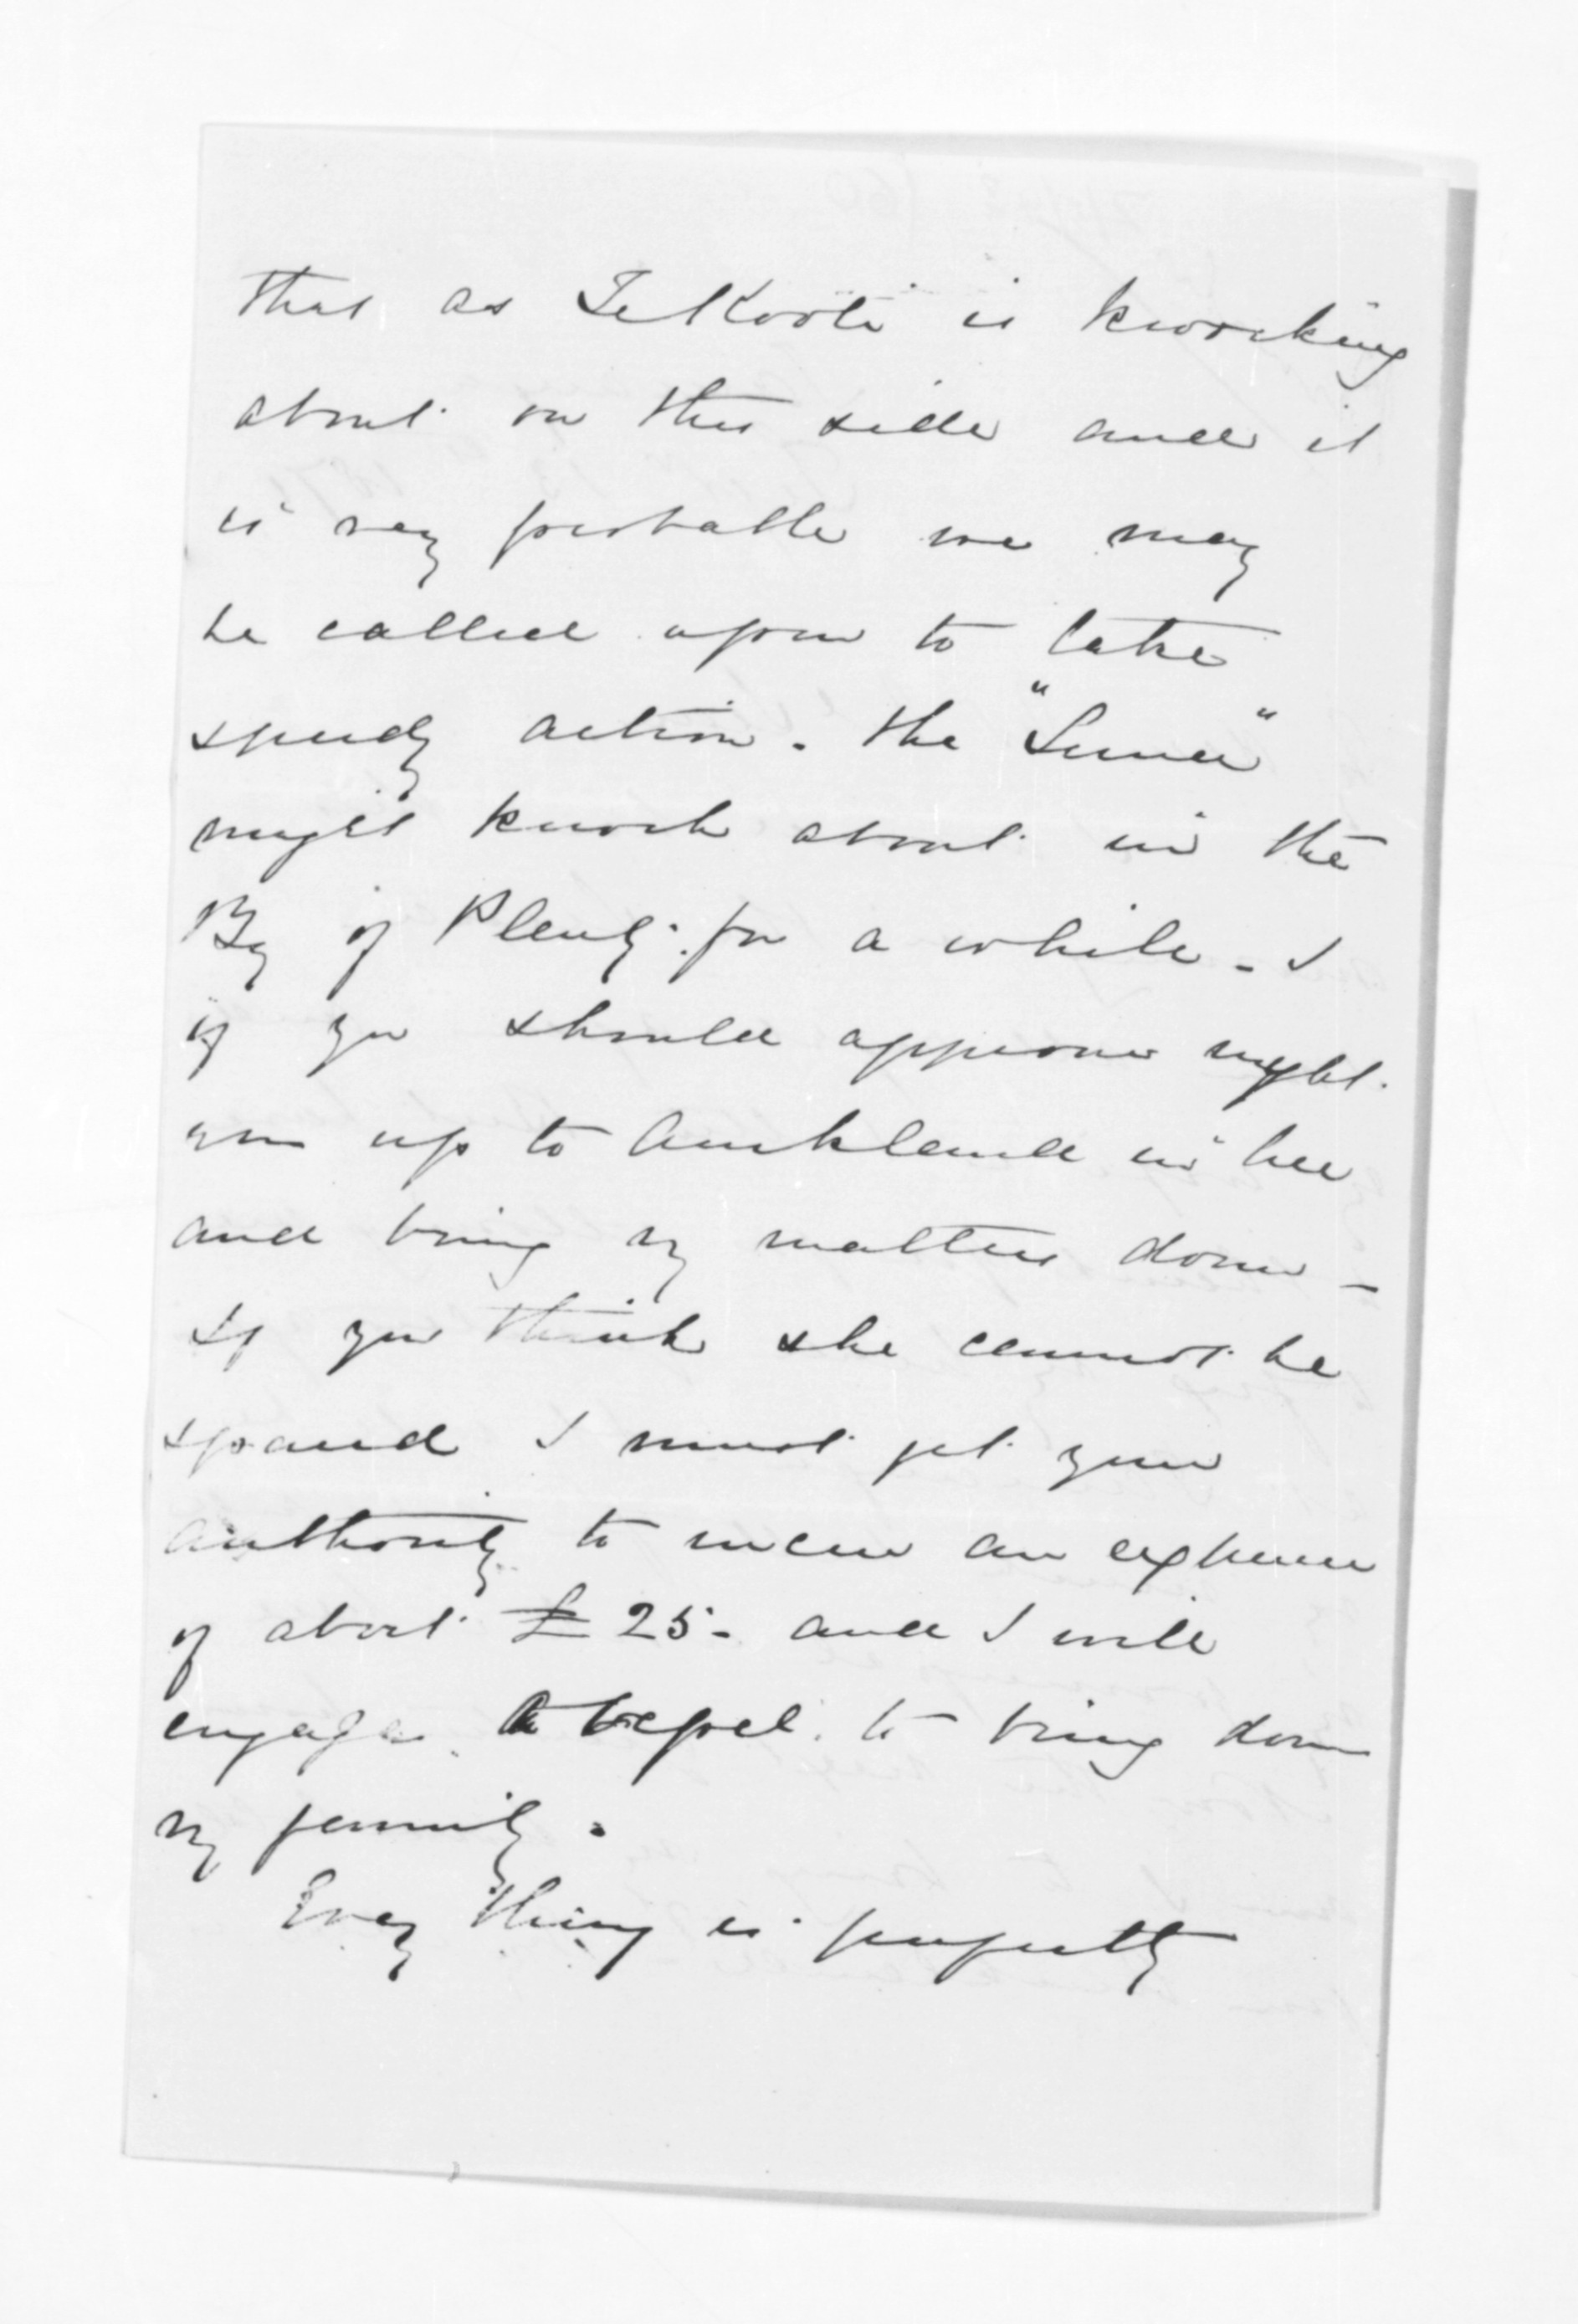 that as Te Kooti is knocking
about on this side and it
is very probable we may
be called upon to take
speedy action. the "Luna"
might knock about in the
Bay of Plenty for a while - I
if you should approve might
run up to Auckland in her
and bring my matters down -
If you think she cannot be
spared I must get your
authority to incur an expense
of about £25 - and I will
engage a vessel to bring down
my family.
Every thing is perfectly